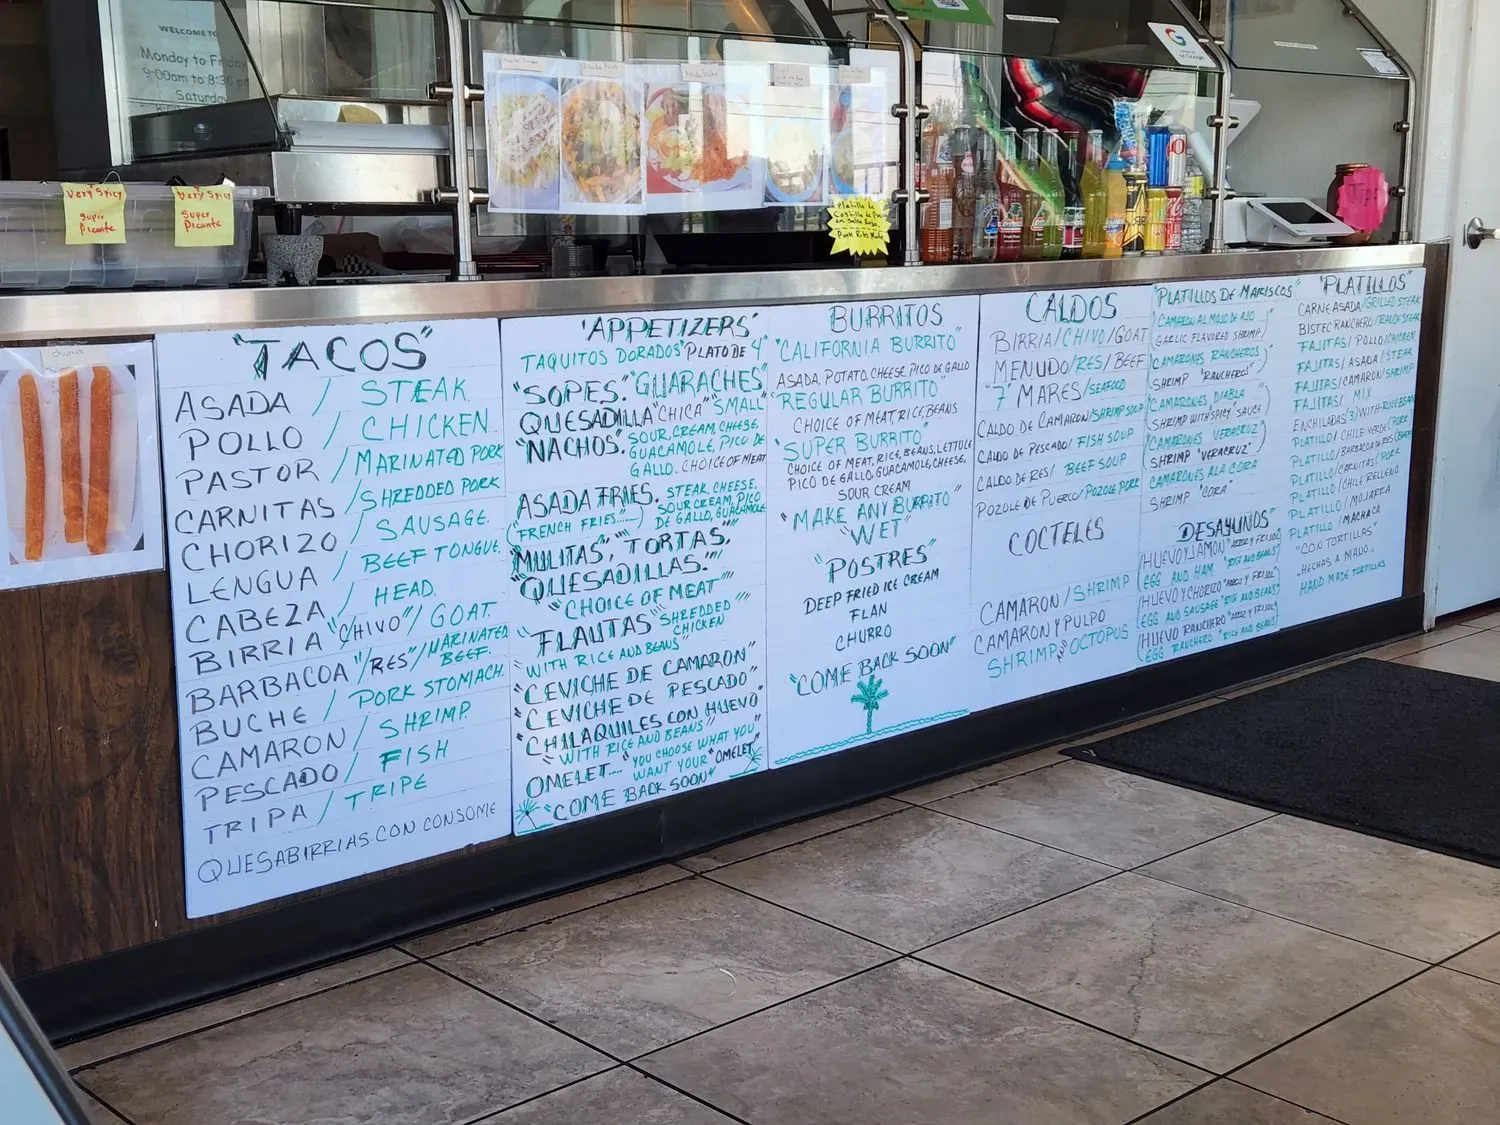 WELCOME TO
Monday to Friday
9:00am to 8:3
Saturday
Very Spicy
Super
Picante
Very Spicy
Super
Picante
Google
TIPS
churros
"TACOS"
ASADA / STEAK
POLLO / CHICKEN
PASTOR / MARINATED PORK
CARNITAS / SHREDDED PORK
CHORIZO / SAUSAGE.
LENGUA / BEEF TONGUE.
CABEZA / HEAD.
BIRRIA "CHIVO" / GOAT.
BARBACOA "RES" / MARINATED BEEF.
BUCHE / PORK STOMACH.
CAMARON / SHRIMP.
PESCADO / FISH
TRIPA / TRIPE
QUESABIRRIAS CON CONSOME
"APPETIZERS"
TAQUITOS DORADOS "PLATO DE 4"
"SOPES." "GUARACHES"
QUESADILLA "CHICA" "SMALL"
"NACHOS." SOUR, CREAM, CHEESE,
GUACAMOLE, PICO DE
GALLO. CHOICE OF MEAT
ASADA FRIES. STEAK, CHEESE,
SOUR CREAM, PICO
("FRENCH FRIES"......) DE GALLO, GUACAMOLE
MULITAS", "TORTAS."
"QUESADILLAS."
"CHOICE OF MEAT"
"FLAUTAS" "SHREDDED
CHICKEN"
"WITH RICE AND BEANS"
"CEVICHE DE CAMARON"
"CEVICHE DE PESCADO"
"CHILAQUILES CON HUEVO
"WITH RICE AND BEANS"
OMELET.... "YOU CHOOSE WHAT YOU
WANT YOUR "OMELET"
"COME BACK SOON"
BURRITOS
"CALIFORNIA BURRITO"
ASADA, POTATO, CHEESE, PICO DE GALLO
"REGULAR BURRITO"
CHOICE OF MEAT, RICE, BEANS
"SUPER BURRITO"
CHOICE OF MEAT, RICE, BEANS, LETTUCE
PICO DE GALLO, GUACAMOLE, CHEESE,
SOUR CREAM
"MAKE ANY BURRITO
"WET"
"POSTRES"
DEEP FRIED ICE CREAM
FLAN
CHURRO
"COME BACK SOON"
CALDOS
BIRRIA/CHIVO/GOAT
MENUDO/RES/BEEF
"7" MARES/SEAFOOD
CALDO DE CAMARON/SHRIMP SOUP
CALDO DE PESCADO/ FISH SOUP
CALDO DE RES/ BEEF SOUP
POZOLE DE PUERCO/POZOLE PORK
COCTELES
CAMARON/SHRIMP
CAMARON Y PULPO
SHRIMP AND OCTOPUS
"PLATILLOS DE MARISCOS"
(CAMARON AL MOJO DE AJO
GARLIC FLAVORED SHRIMP.)
(CAMARONES RANCHEROS)
SHRIMP "RANCHEROS"
(CAMARONES DIABLA)
SHRIMP WITH SPICY SAUCE)
(CAMARONES VERACRUZ)
SHRIMP "VERACRUZ"
CAMARONES A LA CORA
SHRIMP "CORA"
DESAYUNOS"
(HUEVO Y JAMON "ARROZ Y FRIJOL
EGG AND HAM "RICE AND BEANS)
(HUEVO Y CHORIZO "ARROZ Y FRIJOL
EGG AND SAUSAGE "RICE AND BEANS)
(HUEVO RANCHERO "ARROZ Y FRIJOL
EGG RANCHERO "RICE AND BEANS")
"PLATILLOS"
CARNE ASADA/GRILLED STEAK
BISTEC RANCHERO/RANCH STEAK
FAJITAS/POLLO/CHICKEN
FAJITAS/ASADA/STEAK
FAJITAS/CAMARON/SHRIMP
FAJITAS/ MIX
ENCHILADAS (3) WITH-RICE BEANS
PLATILLO/CHILE VERDE (PORK
PLATILLO/BARBACOA DE RES (BEEF)
PLATILLO/CARNITAS (PORK
PLATILLO/CHILE RELLENO
PLATILLO/MOJARRA
PLATILLO/MACHACA
"CON TORTILLAS"
"HECHAS A MANO."
HAND MADE TORTILLAS